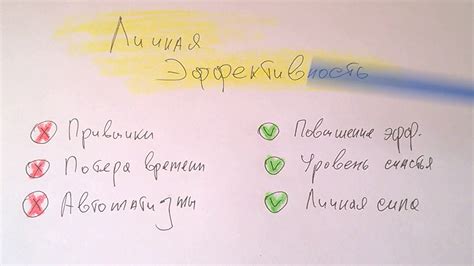 Личная
Эффективность
Привычки
Потеря времени
Автоматизмы
Повышение эфф.
Уровень счастья
Личная сила